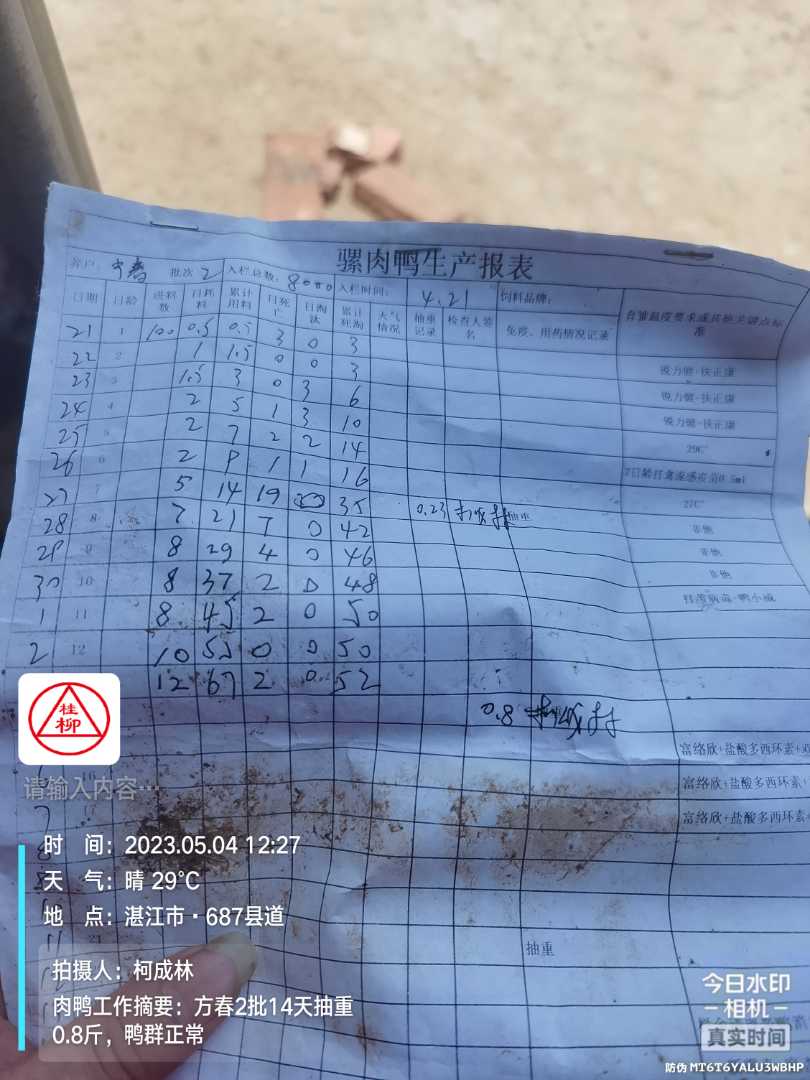 骡肉鸭生产报表
养户: 方春 批次 2 入栏总数: 8000 入栏时间: 4.21 饲料品牌:
日期 日龄 进料数 日耗料 累计用料 日死亡 日淘汰 累计死淘 天气情况 抽重记录 检查人签名 免疫、用药情况记录 育雏温度要求或其他关键点标准
21 1 100 0.5 0.5 3 0 3
22 2 1 1.5 0 0 3 锐力健+扶正康
23 3 1.5 3 0 3 6 锐力健+扶正康
24 4 2 5 1 3 10 锐力健+扶正康
25 5 2 7 2 2 14 29C°
26 6 2 9 1 1 16
27 7 5 14 19 35 0.23 抽重 27C°
28 8 7 21 7 0 42
29 9 8 29 4 0 46
30 10 8 37 2 0 48
1 11 8 45 2 0 50
2 12 10 55 0 0 50
12 67 2 0 52
0.8
富络欣+盐酸多西环素+
16 富络欣+盐酸多西环素+
富络欣+盐酸多西环素+
21 抽重
桂柳
请输入内容…
时 间: 2023.05.04 12:27
天 气: 晴 29℃
地 点: 湛江市·687县道
拍摄人: 柯成林
肉鸭工作摘要: 方春2批14天抽重
0.8斤，鸭群正常
今日水印
相机
真实时间
防伪 MT6T6YALU3WBHP